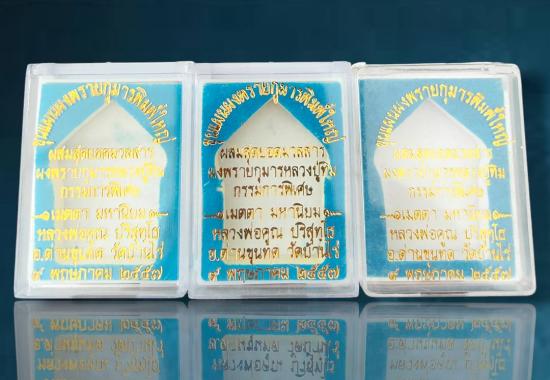 ขุนแผนผงพรายกุมารพิมพ์ใหญ่
ผสมสุดยอดมวลสาร
ผงพรายกุมารหลวงปู่ทิม
กรรมการพิเศษ
๑เมตตา มหานิยม๑
หลวงพ่อคูณ ปริสุทฺโธ
อ.ด่านขุนทด วัดบ้านไร่
๙ พฤษภาคม ๒๕๕๗
ขุนแผนผงพรายกุมารพิมพ์ใหญ่
ผสมสุดยอดมวลสาร
ผงพรายกุมารหลวงปู่ทิม
กรรมการพิเศษ
๑เมตตา มหานิยม๑
หลวงพ่อคูณ ปริสุทฺโธ
อ.ด่านขุนทด วัดบ้านไร่
๙ พฤษภาคม ๒๕๕๗
ขุนแผนผงพรายกุมารพิมพ์ใหญ่
ผสมสุดยอดมวลสาร
ผงพรายกุมารหลวงปู่ทิม
กรรมการพิเศษ
๑เมตตา มหานิยม๑
หลวงพ่อคูณ ปริสุทฺโธ
อ.ด่านขุนทด วัดบ้านไร่
๙ พฤษภาคม ๒๕๕๗